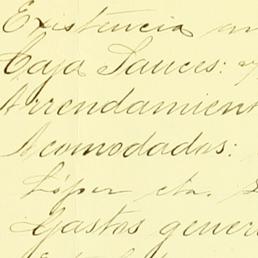 Existencia an
Caja Sauces:
Arrendamient
Acomodados:
López cta.
Gastos gener